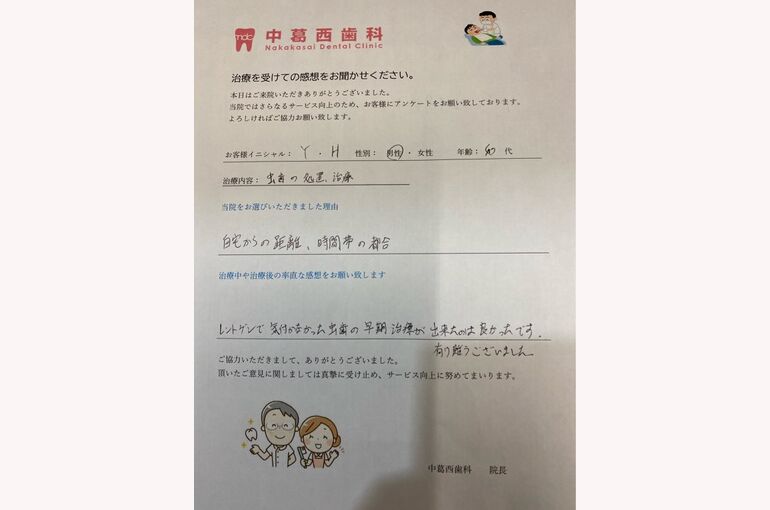 ndc
中葛西歯科
Nakakasai Dental Clinic
治療を受けての感想をお聞かせください。
本日はご来院いただきありがとうございました。
当院ではさらなるサービス向上のため、お客様にアンケートをお願い致しております。
よろしければご協力お願い致します。
お客様イニシャル： Y．H 性別： 男性・女性 年齢： 代
治療内容： 虫歯の処置、治療
当院をお選びいただきました理由
自宅からの距離、時間帯の都合
治療中や治療後の率直な感想をお願い致します
レントゲンで気付かなかった虫歯の早期治療が出来たのは良かったです.
有り難うございました
ご協力いただきまして、ありがとうございました。
頂いたご意見に関しましては真摯に受け止め、サービス向上に努めてまいります。
中葛西歯科 院長